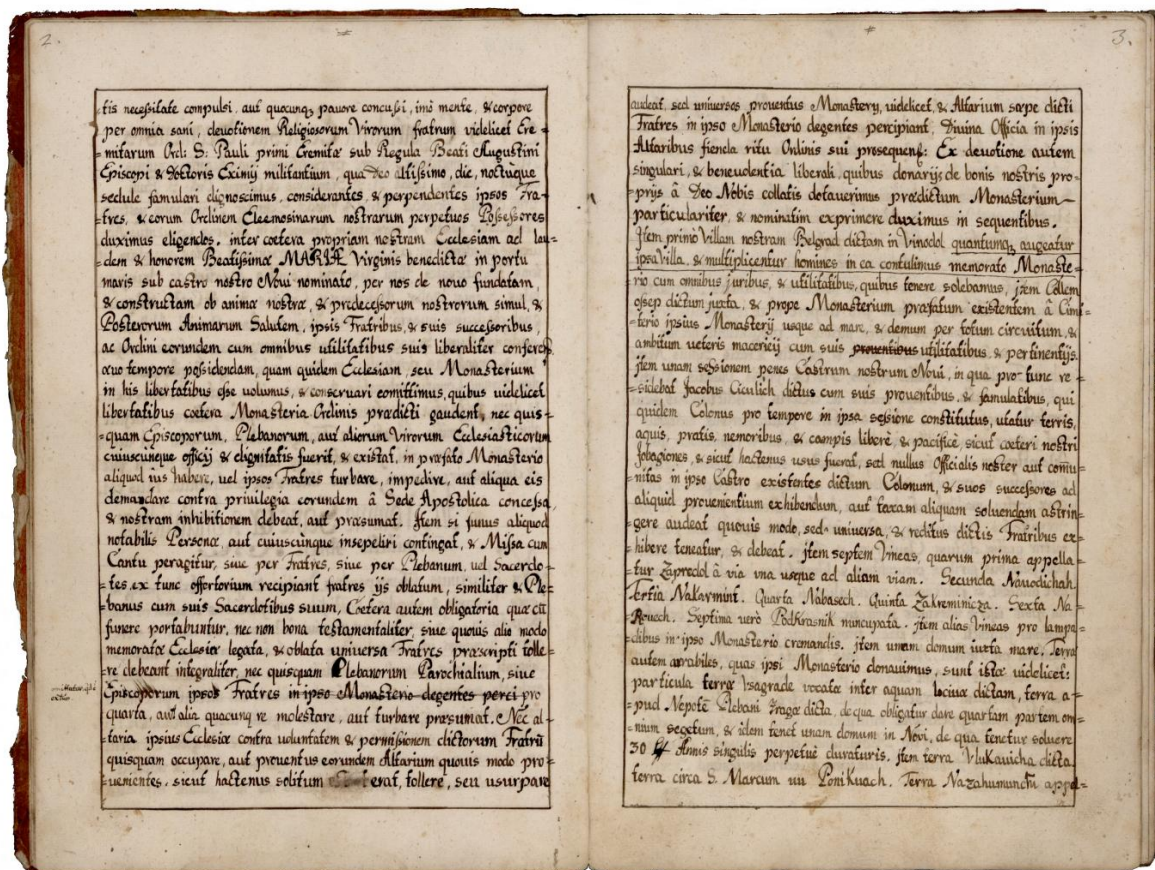 2.
tis necessitate compulsi, aut quocunq; pavore concussi, imò mente, & corpore
per omnia sani, devotionem Religiosorum Virorum fratrum videlicet Ere=
=mitarum Ord: S: Pauli primi Eremitæ sub Regula Beati Augustini
Episcopi & doctoris Eximij militantium, qua Deo altissimo, die, noctuque
sedule famulari dignoscimus, considerantes, & perpendentes ipsos Fra=
=tres, & eorum Ordinem Eleemosinarum nostrarum perpetuos Possessores
duximus eligendos. inter cœtera propriam nostram Ecclesiam ad lau=
=dem & honorem Beatissimæ MARIÆ Virginis benedictæ in portu
maris sub castro nostro Novi nominato, per nos de nouo fundatam,
& constructam ob animæ nostræ, & prædecessorum nostrorum simul, &
Posterorum Animarum Salutem, ipsis Fratribus, & suis successoribus,
ac Ordini eorundem cum omnibus utilitatibus suis liberaliter conferens
æuo tempore possidendam, quam quidem Ecclesiam, seu Monasterium
in his libertatibus esse volumus, & conseruari comittimus, quibus uidelicet
libertatibus cœtera Monasteria Ordinis prædicti gaudent, nec quis=
=quam Episcoporum, Plebanorum, aut aliorum Virorum Ecclesiasticorum
cuiuscunque officij & dignitatis fuerit, & existat, in præfato Monasterio
aliquod ius habere, uel ipsos Fratres turbare, impedire, aut aliqua eis
demandare contra priuilegia eorundem â Sede Apostolica concessa,
& nostram inhibitionem debeat, aut præsumat. Item si funus aliquod
notabilis Personæ, aut cuiuscunque insepeliri contingat, & Missa cum
Cantu peragitur, siue per Fratres, siue per Plebanum, uel Sacerdo=
=tes, ex tunc offertorium recipiant fratres ijs oblatum, similiter & Ple=
=banus cum suis Sacerdotibus suum, Cœtera autem obligatoria quæ cū
funere portabuntur, nec non bona testamentaliter, siue quouis alio modo
memoratæ Ecclesiæ legata, & oblata universa Fratres præscripti tolle=
=re debeant integraliter, nec quisquam Plebanorum Parochialium, siue
Episcoporum ipsos Fratres in ipso Monasterio degentes perci pro
quarta, aut alia quacunq re molestare, aut turbare præsumat. Nec al=
=taria ipsius Ecclesiæ contra uoluntatem & permissionem dictorum Fratrū
quisquam occupare, aut prouentus eorundem Altarium quouis modo pro=
=uenientes, sicut hactenus solitum erat, tollere, seu usurpare
3.
audeat, sed universos proventus Monastery, uidelicet, & Altarium sæpe dicti
Fratres in ipso Monasterio degentes percipiant, Divina Officia in ipsis
Altaribus fienda ritu Ordinis sui prosequent: Ex devotione autem
singulari, & beneuolentia liberali, quibus donarijs de bonis nostris pro=
=prijs â Deo Nobis collatis dotauerimus prædictum Monasterium
particulariter, & nominatim exprimere duximus in sequentibus.
Item primò Villam nostram Belgrad dictam in Vinodol quantumq; augeatur
ipsa Villa, & multiplicentur homines in ea contulimus memorato Monaste=
=rio cum omnibus juribus, & utilitatibus, quibus tenere solebamus, item Collem
ossep dictum juxta, & prope Monasterium præfatum existentem â Cimi=
=terio ipsius Monasterij usque ad mare, & demum per totum circuitum, &
ambitum ueteris macerieij cum suis prouentibus utilitatibus, & pertinentijs.
item unam sessionem penes Castrum nostrum Novi, in qua pro tunc re=
=sidebat Jacobus Ciculich dictus cum suis prouentibus, & famulatibus, qui
quidem Colonus pro tempore in ipsa sessione constitutus, utatur terris,
aquis, pratis, nemoribus, & campis liberè, & pacificè, sicut cœteri nostri
Jobagiones, & sicut hactenus usus fuerat, sed nullus Officialis noster aut comu=
=nitas in ipso Castro existentes dictum Colonum, & suos successores ad
aliquid prouenientium exhibendum, aut taxam aliquam soluendam astrin=
=gere audeat quouis modo, sed universa, & reditus dictis Fratribus ex=
=hibere teneatur, & debeat. item septem Vineas, quarum prima appella=
=tur Zapredol â via vna usque ad aliam viam. Secunda Nauodichah.
Tertia Nakarmint. Quarta Nabasech. Quinta Zakreminicza. Sexta Na=
=Rouech. Septima verò PodKrasnik nuncupata. item alias Vineas pro lampa=
=dibus in ipso Monasterio cremandis. item unam domum iuxta mare. Terræ
autem arabiles, quas ipsi Monasterio donauimus, sunt istæ uidelicet:
particula terræ Vsagrade vocatæ inter aquam lociuæ dictam, terra a=
=pud Nepotē Plebani Zraga dicta, de qua obligatur dare quartam partem om=
=nium segetum, & idem tenet unam domum in Novi, de qua tenetur soluere
30 Annis singulis perpetuè duraturis. item terra VluKauicha dicta.
terra circa S. Marcum uu PoniKuach. Terra Nazahumunchi appel=